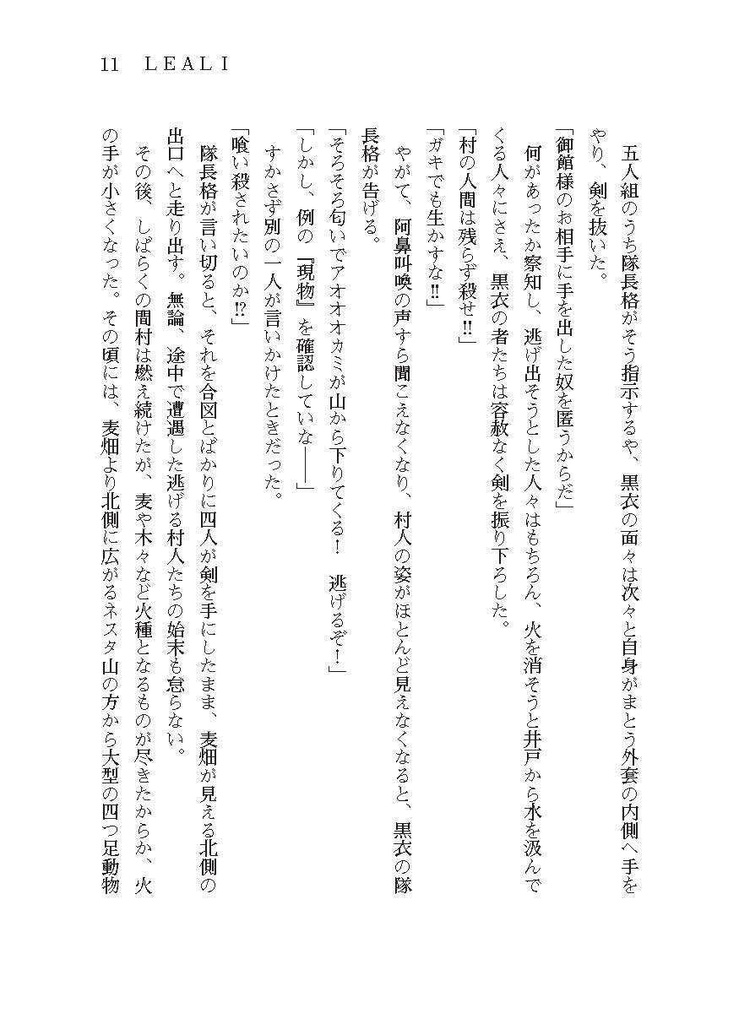 11　ＬＥＡＬＩ
　五人組のうち隊長格がそう指示するや、黒衣の面々は次々と自身がまとう外套の内側へ手を
やり、剣を抜いた。
「御館様のお相手に手を出した奴を匿うからだ」
　何があったか察知し、逃げ出そうとした人々はもちろん、火を消そうと井戸から水を汲んで
くる人々にさえ、黒衣の者たちは容赦なく剣を振り下ろした。
「村の人間は残らず殺せ‼」
「ガキでも生かすな‼」
　やがて、阿鼻叫喚の声すら聞こえなくなり、村人の姿がほとんど見えなくなると、黒衣の隊
長格が告げる。
「そろそろ匂いでアオオオカミが山から下りてくる！　逃げるぞ！」
「しかし、例の『現物』を確認していな――」
　すかさず別の一人が言いかけたときだった。
「喰い殺されたいのか⁉」
　隊長格が言い切ると、それを合図とばかりに四人が剣を手にしたまま、麦畑が見える北側の
出口へと走り出す。無論、途中で遭遇した逃げる村人たちの始末も怠らない。
　その後、しばらくの間村は燃え続けたが、麦や木々など火種となるものが尽きたからか、火
の手が小さくなった。その頃には、麦畑より北側に広がるネスタ山の方から大型の四つ足動物